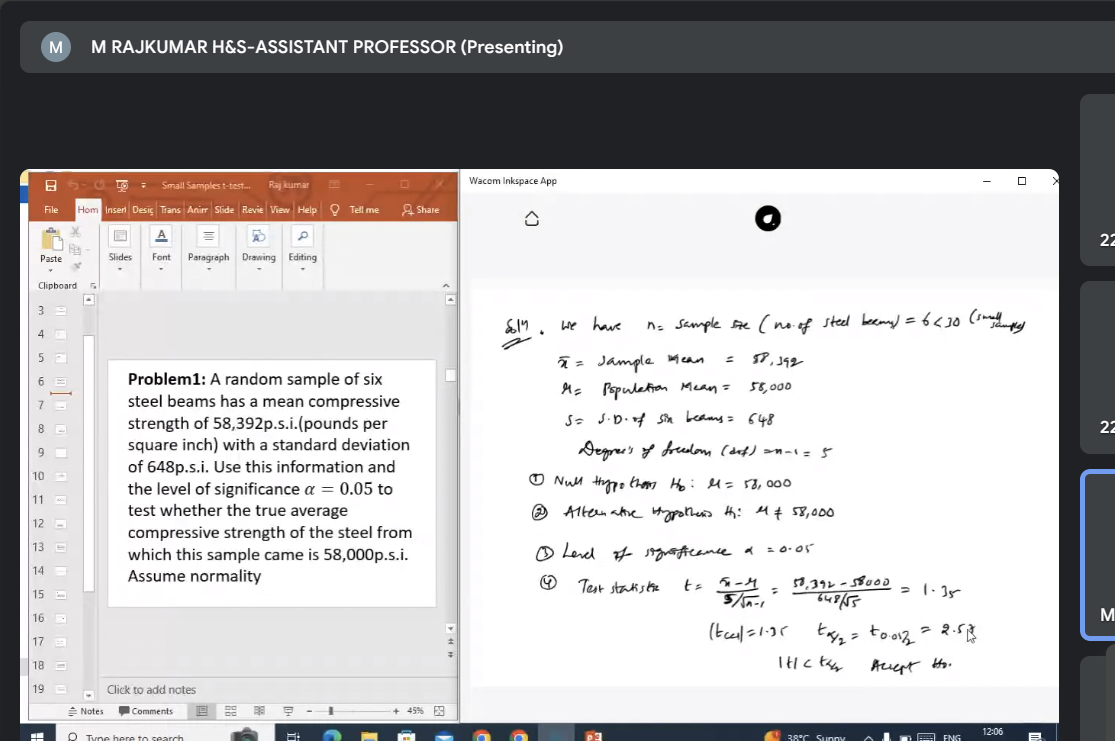 M
M RAJKUMAR H&S-ASSISTANT PROFESSOR (Presenting)
Small Samples t-test...
Raj kumar
File Hom Insert Desig Trans Anim Slide Revie View Help Tell me Share
Paste
Slides
Font
Paragraph
Drawing
Editing
Clipboard
3
4
5
6
7
8
9
10
11
12
13
14
15
16
17
18
19
Problem1: A random sample of six
steel beams has a mean compressive
strength of 58,392p.s.i.(pounds per
square inch) with a standard deviation
of 648p.s.i. Use this information and
the level of significance α = 0.05 to
test whether the true average
compressive strength of the steel from
which this sample came is 58,000p.s.i.
Assume normality
Click to add notes
Notes Comments 45%
Wacom Inkspace App
Sol. We have n = sample size (no. of steel beams) = 6 < 30 (small sample)
x̄ = Sample Mean = 58,392
μ = Population Mean = 58,000
S = S.D. of six beams = 648
Degree's of freedom (dof) = n-1 = 5
① Null Hypothesis H₀: μ = 58,000
② Alternative Hypothesis H₁: μ ≠ 58,000
③ Level of significance α = 0.05
④ Test statistic t = x̄-μ / S/√n-1 = 58,392-58000 / 648/√5 = 1.35
|tcal| = 1.35 tα/2 = t0.05/2 = 2.57
|t| < tα/2 Accept H₀.
22
22
M
Type here to search
38°C Sunny
ENG
12:06